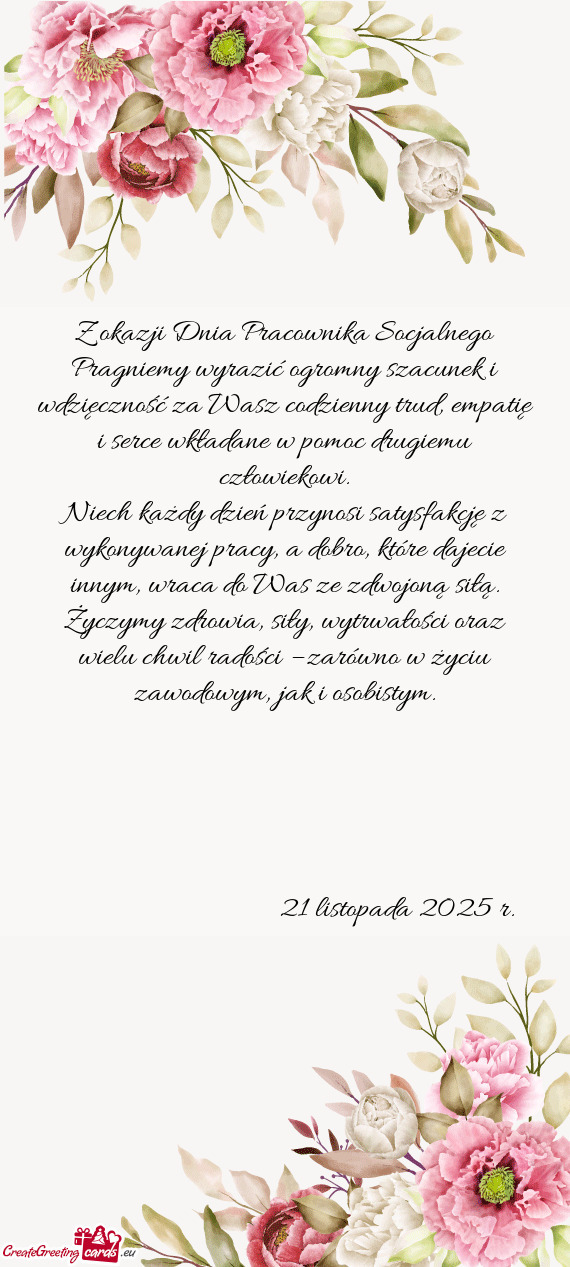 Z okazji Dnia Pracownika Socjalnego
Pragniemy wyrazić ogromny szacunek i
wdzięczność za Wasz codzienny trud, empatię
i serce wkładane w pomoc drugiemu
człowiekowi.
Niech każdy dzień przynosi satysfakcję z
wykonywanej pracy, a dobro, które dajecie
innym, wraca do Was ze zdwojoną siłą.
Życzymy zdrowia, siły, wytrwałości oraz
wielu chwil radości – zarówno w życiu
zawodowym, jak i osobistym.
21 listopada 2025 r.
CreateGreeting cards .eu